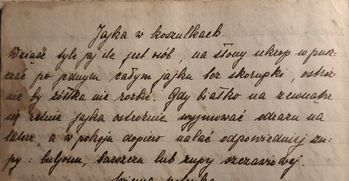 Jajka w koszulkach
Wziąść tyle jaj ile jest osób, na słony ukrop wpusz-
czać po jednym całym jajku bez skorupki, ostroż-
nie by żółtka nie rozbić. Gdy białko na zewnątrz
się zetnie jajka ostrożnie wyjmować odrazu na
talerz, a w pokoju dopiero nalać odpowiedniej zu-
py: buljonu, barszczu lub zupy szczawiowej.